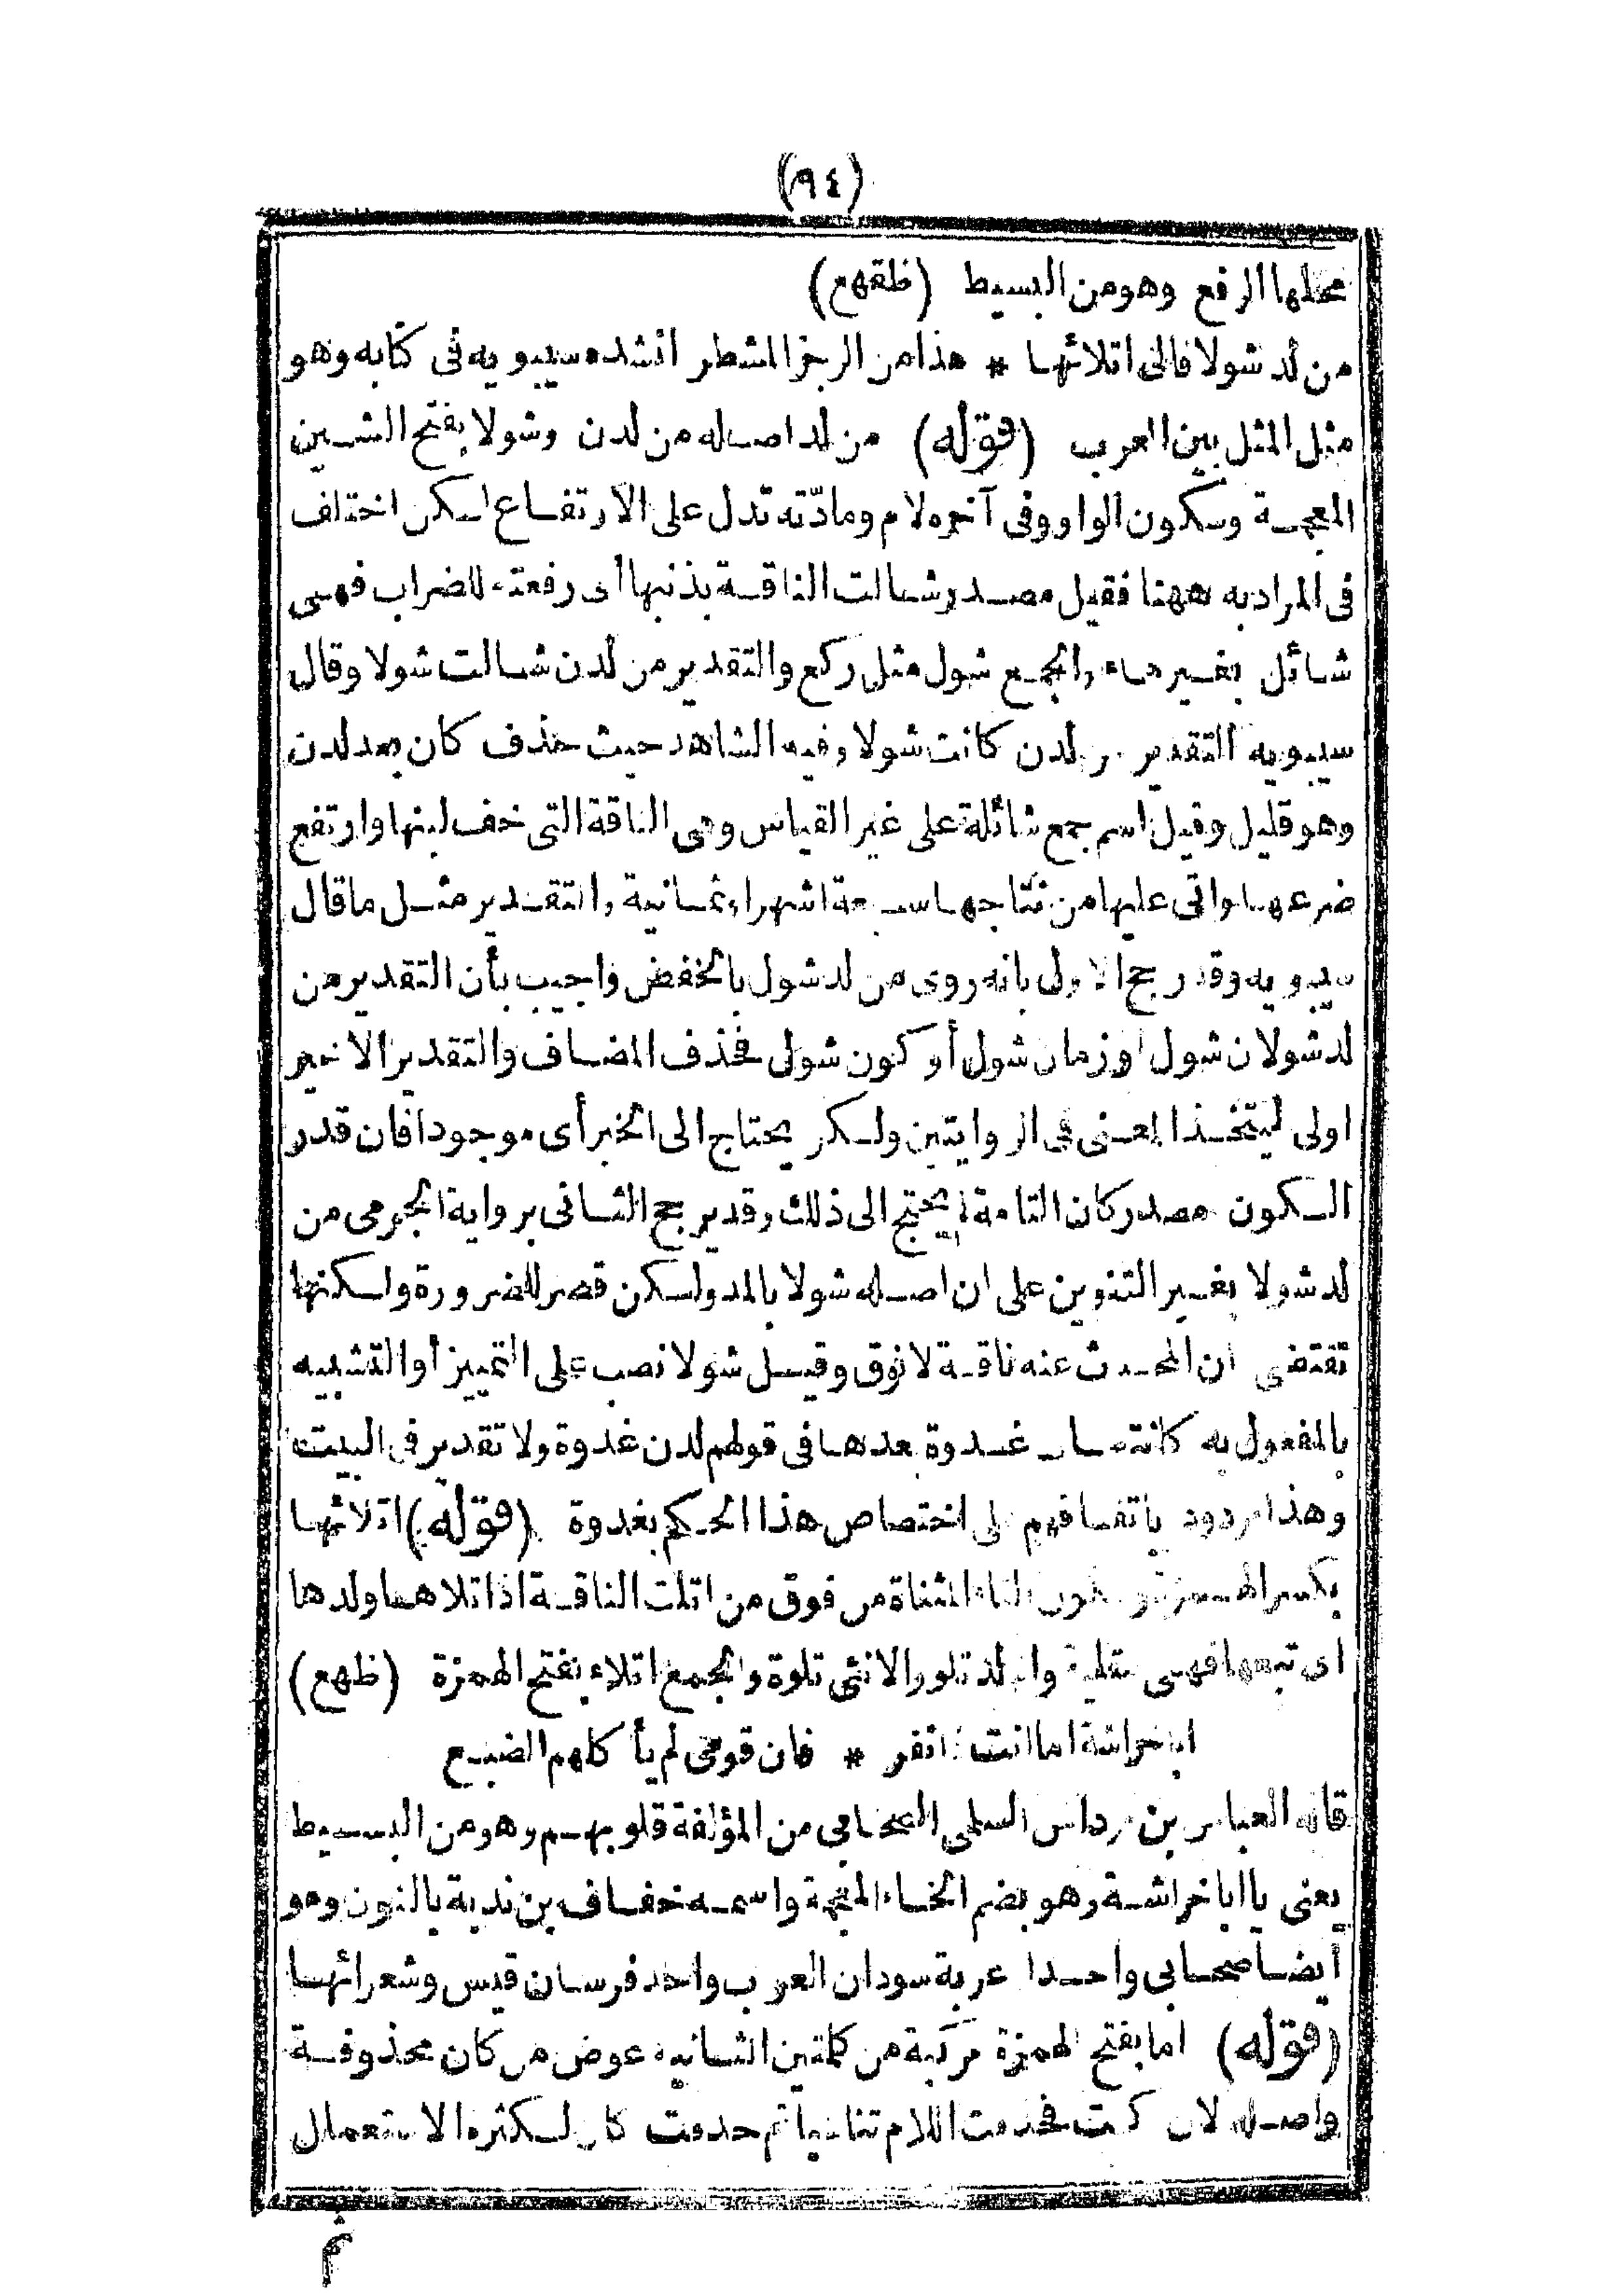 (٩٤)
محلها الرفع وهو من البسيط (ظقهع)
من لد شولا فالى اتلائها * هذا من الرجز المشطر انشده سيبويه فى كتابه وهو
مثل المثل بين العرب (قوله) من لد اصله من لدن وشولا بفتح الشين
المعجمة وسكون الواو وفى آخره لام ومادّته تدل على الارتفاع لكن اختلف
فى المراد به ههنا فقيل مصدر شالت الناقة بذنبها أى رفعته للضراب فهى
شائل بغير هاء والجمع شول مثل ركع والتقدير من لدن شالت شولا وقال
سيبويه التقدير من لدن كانت شولا وفيه الشاهد حيث حذف كان بعد لدن
وهو قليل وقيل اسم جمع شائلة على غير القياس وهى الناقة التى خف لبنها وارتفع
ضرعها واتى عليها من نتاجها سبعة اشهر او ثمانية والتقدير مثل ما قال
سيبويه وقد رجح الاول بانه روى من لد شول بالخفض واجيب بأن التقدير من
لد شولان شول او زمان شول أو كون شول فحذف المضاف والتقدير الاخير
اولى ليتخذ المعنى فى الروايتين ولكن يحتاج الى الخبر أى موجودا فان قدر
الكون مصدر كان التامة لم يحتج الى ذلك وقد يرجح الثانى برواية الجرمى من
لد شولا بغير التنوين على ان اصله شولا بالمد ولكن قصر للضرورة ولكنها
تقتضى ان المحدث عنه ناقة لا نوق وقيل شولا نصب على التمييز أو التشبيه
بالمفعول به كانتصاب غدوة بعدها فى قولهم لدن غدوة ولا تقدير فى البيت
وهذا مردود باتفاقهم على اختصاص هذا الحكم بغدوة (قوله) اتلائها
بكسر الهمزة وسكون التاء المثناة من فوق من اتلت الناقة اذا تلاها ولدها
اى تبعها فهى متلية والولد تلو والانثى تلوة والجمع اتلاء بفتح الهمزة (ظهع)
ابا خراشة اما انت ذا نفر * فان قومى لم يأكلهم الضبع
قاله العباس بن مرداس السلمى الصحابى من المؤلفة قلوبهم وهو من البسيط
يعنى يا ابا خراشة وهو بضم الخاء المعجمة واسمه خفاف بن ندبة بالنون وهو
أيضا صحابى واحد اغربة سودان العرب واحد فرسان قيس وشعرائها
(قوله) اما بفتح الهمزة مركبة من كلمتين الثانية عوض من كان محذوفة
واصله لان كنت فحذفت اللام تناسيا ثم حذفت كان لكثرة الاستعمال
ثم